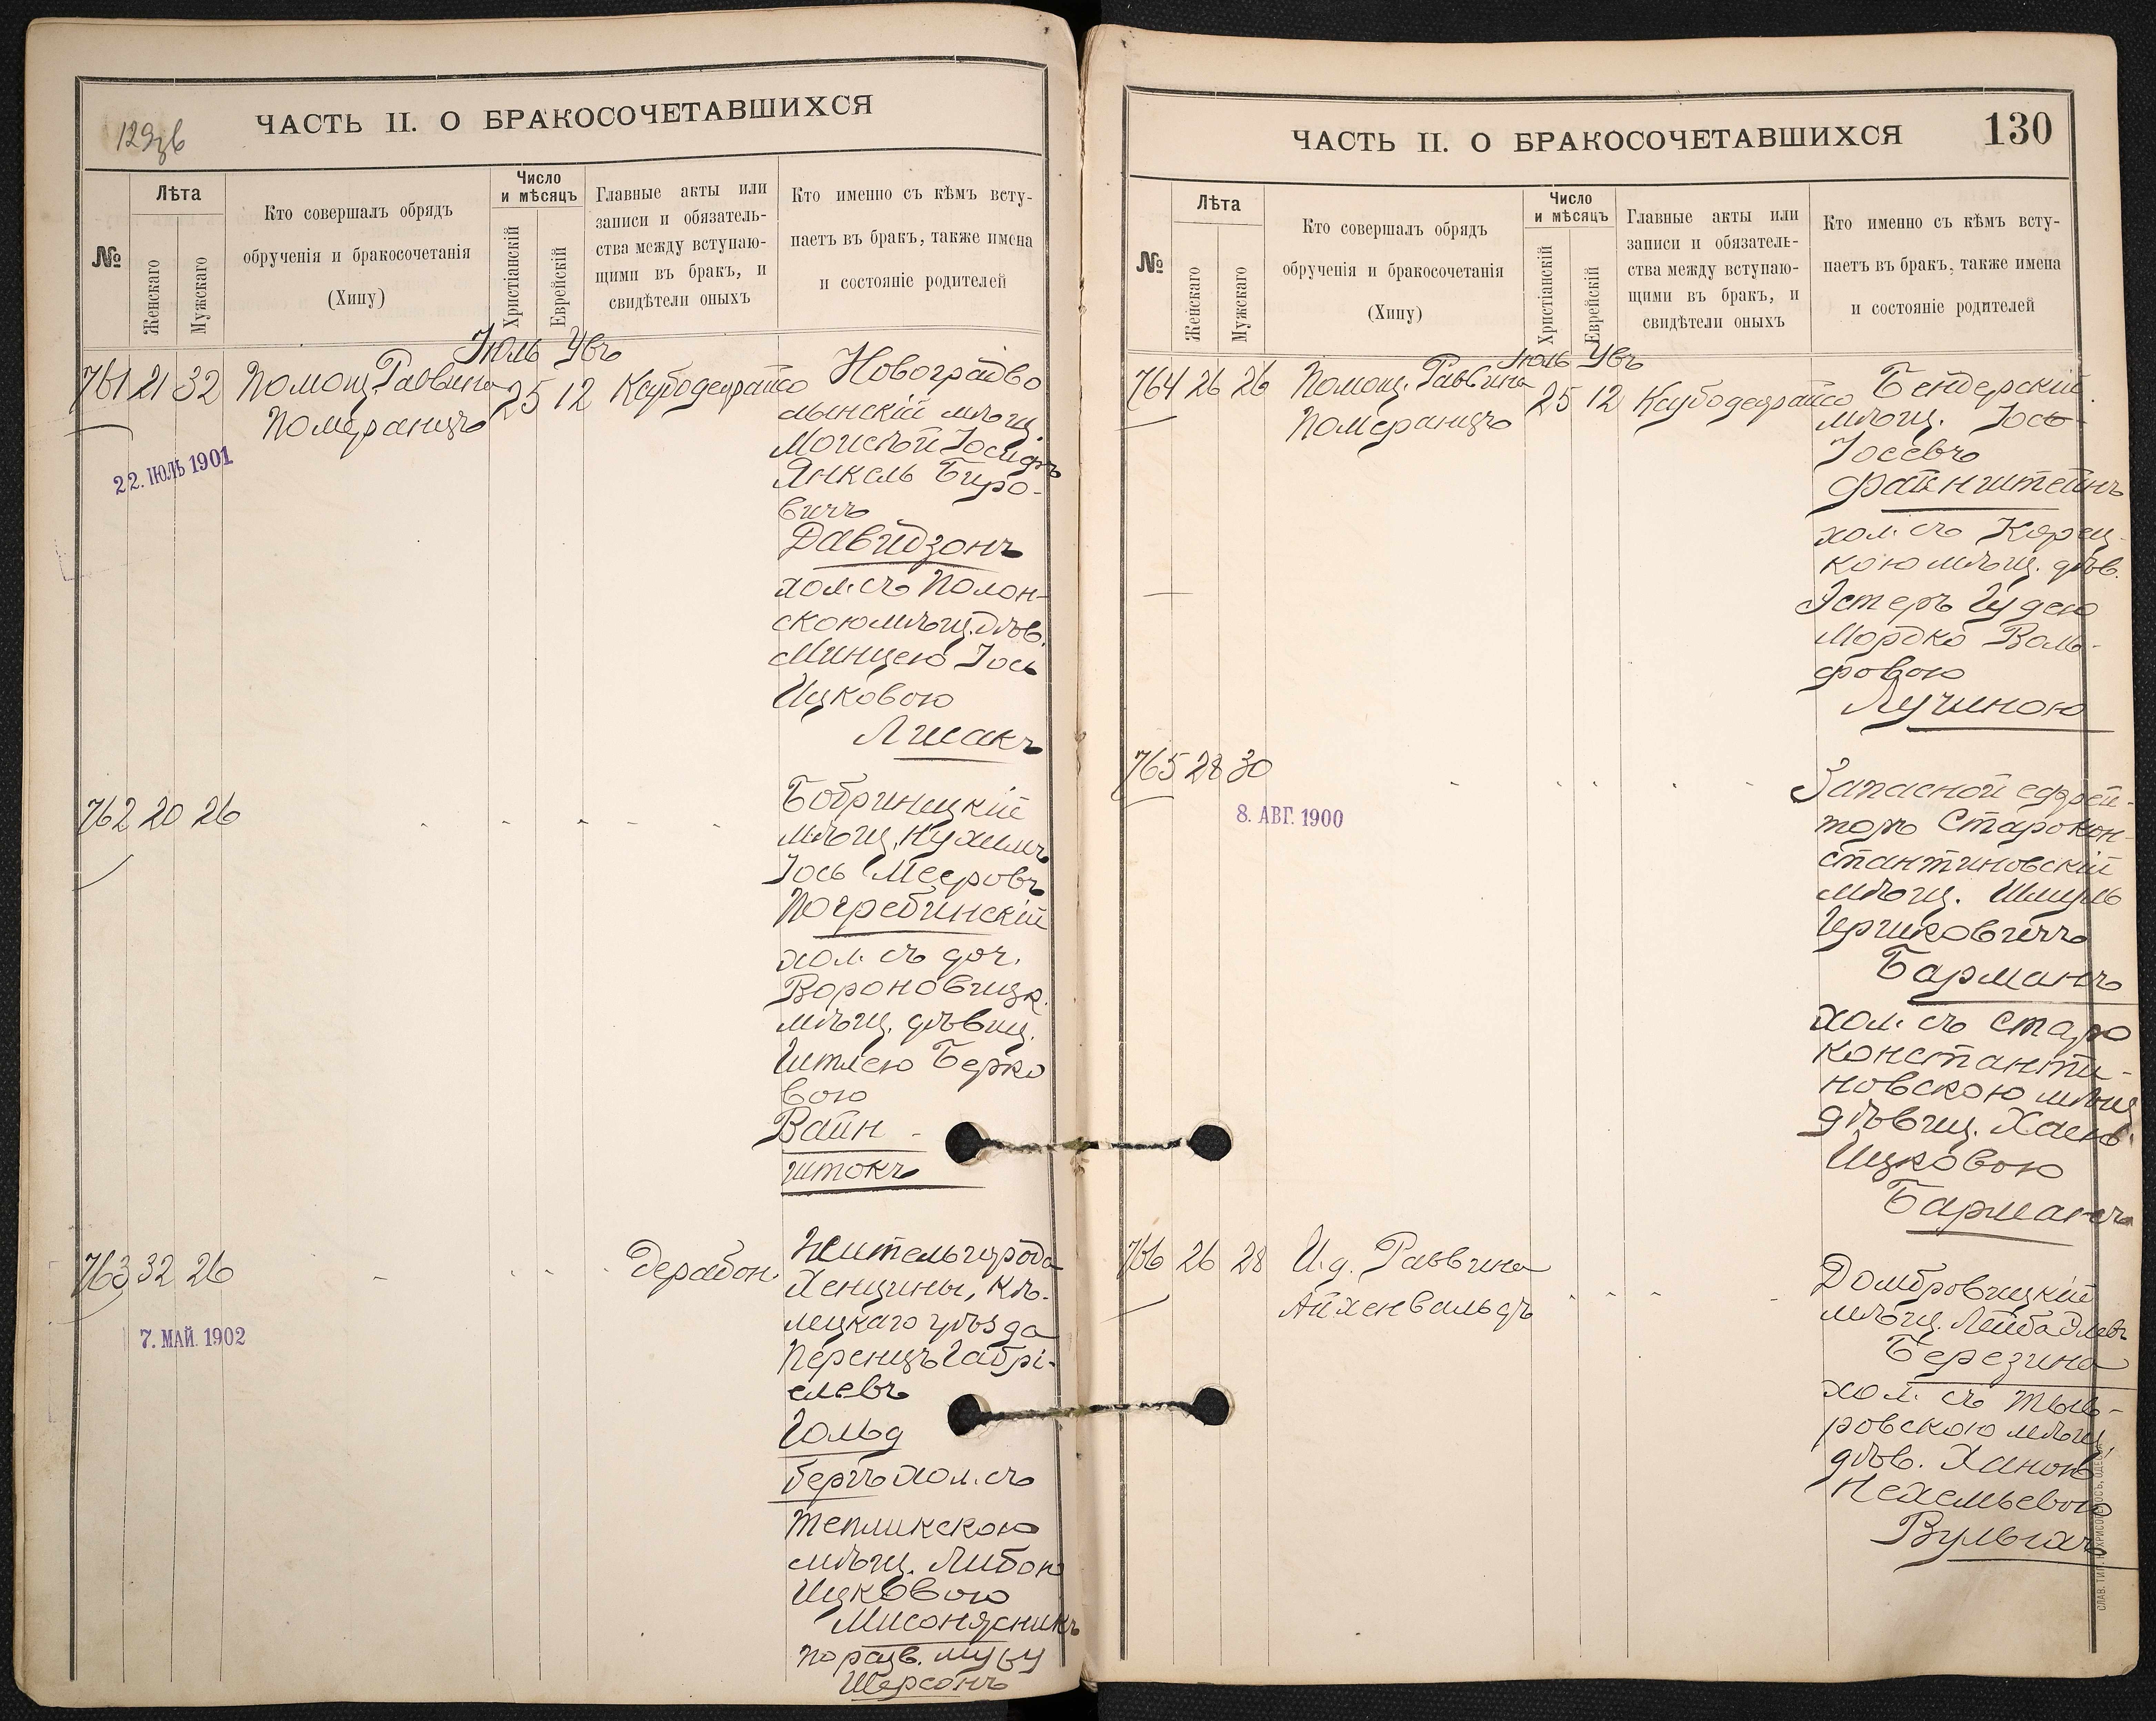 129об
ЧАСТЬ II. О БРАКОСОЧЕТАВШИХСЯ
№
Лѣта
Женскаго
Мужскаго
Кто совершалъ обрядъ
обрученія и бракосочетанія
(Хипу)
Число
и мѣсяцъ
Христіанскій
Еврейскій
Главные акты или
записи и обязатель-
ства между вступаю-
щими въ бракъ, и
свидѣтели оныхъ
Кто именно съ кѣмъ всту-
паетъ въ бракъ, также имена
и состояніе родителей
Іюль Увъ
761 21 32 Помощ. Раввина 25 12
Померанцъ
22. ІЮЛЬ 1901
Новоградво
лынскій мѣщ.
Моисѣй Іосифъ
Янкель Биро-
вичъ
Давидзонъ
хол. съ Полон-
скою мѣщ. дѣв.
Минцею Іось
Ицковою
Лисакъ
762 20 26
Бобринецкій
мѣщ. Нухимъ
Іось Мееровъ
Погребинскій
хол. съ доч.
Вороновицк.
мѣщ. дѣвиц.
Итлею Берко
вою
Вайн-
штокъ
763 32 26
7. МАЙ. 1902
Дерабон.
Житель города
Хенцины, Кѣ-
лецкаго уѣзда
Перенцъ Габрі-
елевъ
Гольд
бергъ хол. съ
Тепликскою
мѣщ. Либою
Ицковою
Мисонясникъ
по разв. мужу
Шерсонъ
ЧАСТЬ II. О БРАКОСОЧЕТАВШИХСЯ
130
№
Лѣта
Женскаго
Мужскаго
Кто совершалъ обрядъ
обрученія и бракосочетанія
(Хипу)
Число
и мѣсяцъ
Христіанскій
Еврейскій
Главные акты или
записи и обязатель-
ства между вступаю-
щими въ бракъ, и
свидѣтели оныхъ
Кто именно съ кѣмъ всту-
паетъ въ бракъ, также имена
и состояніе родителей
Іюль Увъ
764 26 26 Помощ. Раввина 25 12
Померанцъ
Бендерскій
мѣщ. Іось
Іосевъ
Файнштейнъ
хол. съ Корец-
кою мѣщ. дѣв.
Эстеръ Гудею
Мордко Воль-
фовою
Лучиною
765 28 30
8. АВГ. 1900
Запасной ефрей-
торъ Старокон-
стантиновскій
мѣщ. Шмуль
Гершковичъ
Барманъ
хол. съ Старо
константи-
новскою мѣщ.
дѣвиц. Хаею
Ицковою
Барманъ
766 26 28 И. д. Раввина
Айхенвальдъ
Домбровицкій
мѣщ. Лейба Элевъ
Березина
хол. съ Тыв-
ровскою мѣщ.
дѣв. Ханою
Нехемьевою
Вульихъ